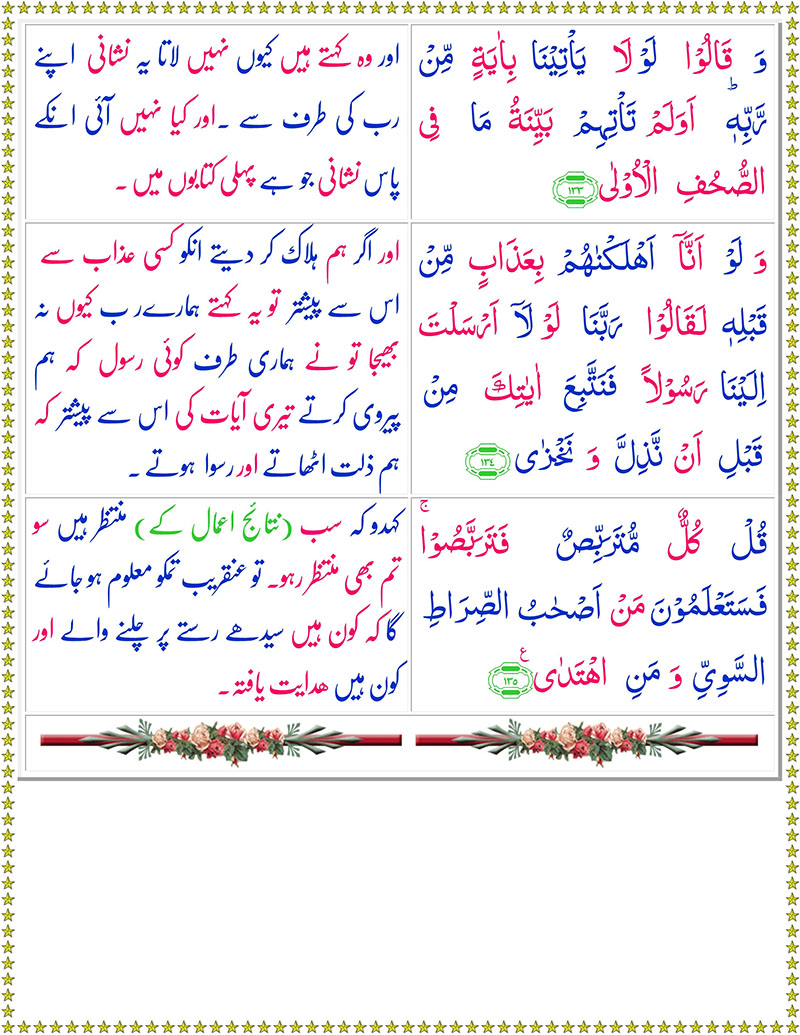 وَ قَالُوۡا لَوۡ لَا يَاۡتِيۡنَا بِاٰيَةٍ مِّنۡ
رَّبِّهٖ ؕ اَوَلَمۡ تَاۡتِهِمۡ بَيِّنَةُ مَا فِى
الصُّحُفِ الۡاُوۡلٰى ١٣٣
اور وہ کہتے ہیں کیوں نہیں لاتا یہ نشانی اپنے
رب کی طرف سے ۔ اور کیا نہیں آئی انکے
پاس نشانی جو ہے پہلی کتابوں میں ۔
وَ لَوۡ اَنَّاۤ اَهۡلَكۡنٰهُمۡ بِعَذَابٍ مِّنۡ
قَبۡلِهٖ لَـقَالُوۡا رَبَّنَا لَوۡ لَاۤ اَرۡسَلۡتَ
اِلَـيۡنَا رَسُوۡلاً فَنَتَّبِعَ اٰيٰتِكَ مِنۡ
قَبۡلِ اَنۡ نَّذِلَّ وَ نَخۡزٰى ١٣٤
اور اگر ہم ہلاک کر دیتے انکو کسی عذاب سے
اس سے پیشتر تو یہ کہتے ہمارے رب کیوں نہ
بھیجا تو نے ہماری طرف کوئی رسول کہ ہم
پیروی کرتے تیری آیات کی اس سے پیشتر کہ
ہم ذلت اٹھاتے اور رسوا ہوتے ۔
قُلۡ كُلٌّ مُّتَرَبِّصٌ فَتَرَبَّصُوۡا ۚ
فَسَتَعۡلَمُوۡنَ مَنۡ اَصۡحٰبُ الصِّرَاطِ
السَّوِىِّ وَ مَنِ اهۡتَدٰى ١٣٥ ع
کہدو کہ سب (نتائج اعمال کے) منتظر ہیں سو
تم بھی منتظر رہو۔ تو عنقریب تمکو معلوم ہو جائے
گا کہ کون ہیں سیدھے رستے پر چلنے والے اور
کون ہیں ھدایت یافتہ۔